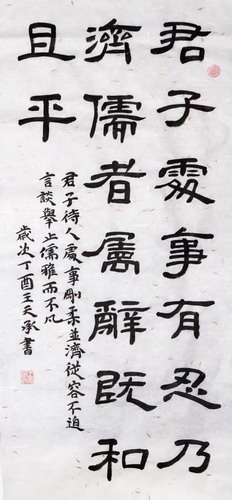 君子處事有忍乃
濟儒者属辭既和
且平
君子待人處事剛柔並濟從容不迫
言談舉止儒雅而不凡
歲次丁酉王天承書